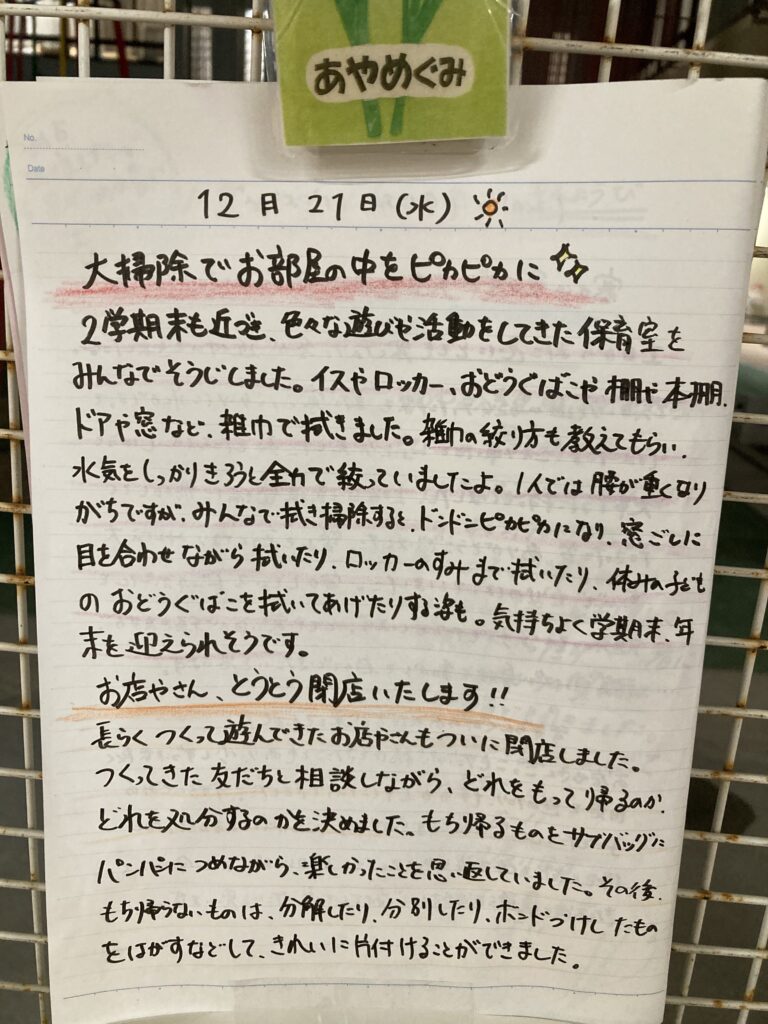 あやめぐみ
No.
Date
12月21日(水)
大掃除でお部屋の中をピカピカに
2学期末も近づき、色々な遊びや活動をしてきた保育室を
みんなでそうじしました。イスやロッカー、おどうぐばこや棚や本棚、
ドアや窓など、雑巾で拭きました。雑巾の絞り方も教えてもらい、
水気をしっかりきろうと全力で絞っていましたよ。1人では腰が重くなり
がちですが、みんなで拭き掃除すると、ドンドンピカピカになり、窓ごしに
目を合わせながら拭いたり、ロッカーのすみまで拭いたり、休みの子ども
のおどうぐばこを拭いてあげたりする姿も。気持ちよく学期末、年
末を迎えられそうです。
お店やさん、とうとう閉店いたします!!
長らくつくって遊んできたお店やさんもついに閉店しました。
つくってきた友だちと相談しながら、どれをもって帰るのか、
どれを処分するのかを決めました。もち帰るものをサブバッグに
パンパンにつめながら、楽しかったことを思い返していました。その後、
もち帰らないものは、分解したり、分別したり、ボンドづけしたもの
をはがすなどして、きれいに片付けることができました。